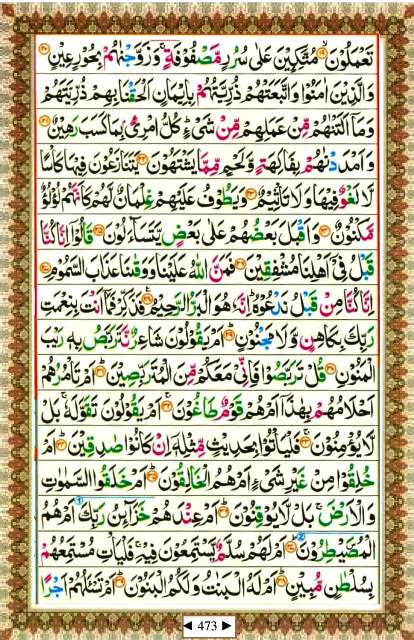 تَعْمَلُوْنَ ۙ﴿۱۹﴾ مُتَّكِـِٕيْنَ عَلٰى سُرُرٍ مَّصْفُوْفَةٍ ۚ وَزَوَّجْنٰهُمْ بِحُوْرٍ عِيْنٍ ﴿۲۰﴾
وَالَّذِيْنَ اٰمَنُوْا وَاتَّبَعَتْهُمْ ذُرِّيَّتُهُمْ بِاِيْمَانٍ اَلْحَقْنَا بِهِمْ ذُرِّيَّتَهُمْ
وَمَاۤ اَلَتْنٰهُمْ مِّنْ عَمَلِهِمْ مِّنْ شَيْءٍ ؕ كُلُّ امْرِئٍۢ بِمَا كَسَبَ رَهِيْنٌ ﴿۲۱﴾
وَاَمْدَدْنٰهُمْ بِفَاكِهَةٍ وَّلَحْمٍ مِّمَّا يَشْتَهُوْنَ ﴿۲۲﴾ يَتَنَازَعُوْنَ فِيْهَا كَاْسًا
لَّا لَغْوٌ فِيْهَا وَلَا تَاْثِيْمٌ ﴿۲۳﴾ وَيَطُوْفُ عَلَيْهِمْ غِلْمَانٌ لَّهُمْ كَاَنَّهُمْ لُؤْلُؤٌ
مَّكْنُوْنٌ ﴿۲۴﴾ وَاَقْبَلَ بَعْضُهُمْ عَلٰى بَعْضٍ يَّتَسَآءَلُوْنَ ﴿۲۵﴾ قَالُوْۤا اِنَّا كُنَّا
قَبْلُ فِيْۤ اَهْلِنَا مُشْفِقِيْنَ ﴿۲۶﴾ فَمَنَّ اللّٰهُ عَلَيْنَا وَوَقٰىنَا عَذَابَ السَّمُوْمِ ﴿۲۷﴾
اِنَّا كُنَّا مِنْ قَبْلُ نَدْعُوْهُ ؕ اِنَّهٗ هُوَ الْبَرُّ الرَّحِيْمُ ﴿۲۸﴾ فَذَكِّرْ فَمَاۤ اَنْتَ بِنِعْمَتِ
رَبِّكَ بِكَاهِنٍ وَّلَا مَجْنُوْنٍ ؕ﴿۲۹﴾ اَمْ يَقُوْلُوْنَ شَاعِرٌ نَّتَرَبَّصُ بِهٖ رَيْبَ
الْمَنُوْنِ ﴿۳۰﴾ قُلْ تَرَبَّصُوْا فَاِنِّيْ مَعَكُمْ مِّنَ الْمُتَرَبِّصِيْنَ ؕ﴿۳۱﴾ اَمْ تَاْمُرُهُمْ
اَحْلَامُهُمْ بِهٰذَاۤ اَمْ هُمْ قَوْمٌ طَاغُوْنَ ۚ﴿۳۲﴾ اَمْ يَقُوْلُوْنَ تَقَوَّلَهٗ ۚ بَلْ
لَّا يُؤْمِنُوْنَ ۚ﴿۳۳﴾ فَلْيَاْتُوْا بِحَدِيْثٍ مِّثْلِهٖۤ اِنْ كَانُوْا صٰدِقِيْنَ ؕ﴿۳۴﴾ اَمْ
خُلِقُوْا مِنْ غَيْرِ شَيْءٍ اَمْ هُمُ الْخٰلِقُوْنَ ؕ﴿۳۵﴾ اَمْ خَلَقُوا السَّمٰوٰتِ
وَالْاَرْضَ ۚ بَلْ لَّا يُوْقِنُوْنَ ؕ﴿۳۶﴾ اَمْ عِنْدَهُمْ خَزَآئِنُ رَبِّكَ اَمْ هُمُ
الْمُصَۜيْطِرُوْنَ ؕ﴿۳۷﴾ اَمْ لَهُمْ سُلَّمٌ يَّسْتَمِعُوْنَ فِيْهِ ۚ فَلْيَاْتِ مُسْتَمِعُهُمْ
بِسُلْطٰنٍ مُّبِيْنٍ ؕ﴿۳۸﴾ اَمْ لَهُ الْبَنٰتُ وَلَكُمُ الْبَنُوْنَ ؕ﴿۳۹﴾ اَمْ تَسْـَٔلُهُمْ اَجْرًا
◄ 473 ►